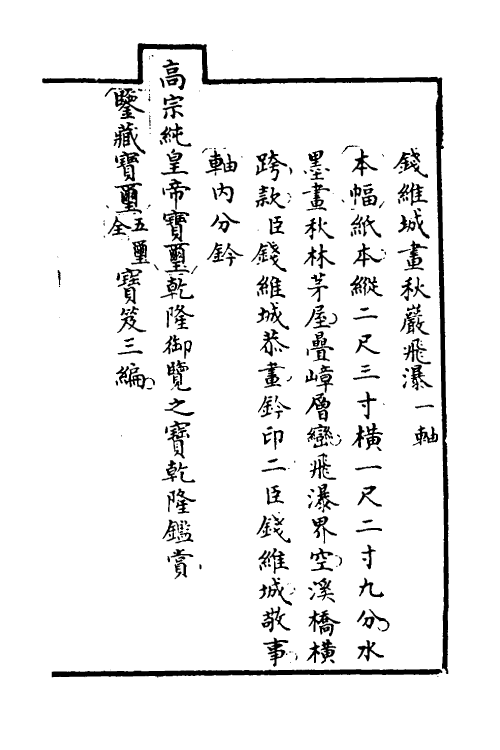 錢維城畫秋巖飛瀑一軸
本幅紙本縱二尺三寸橫一尺二寸九分水
墨畫秋林茅屋疊嶂層巒飛瀑界空溪橋橫
跨款臣錢維城恭畫鈐印二臣錢維城敬事
軸內分鈐
高宗純皇帝寶璽乾隆御覽之寶乾隆鑑賞
鑒藏寶璽五璽全寶笈三編